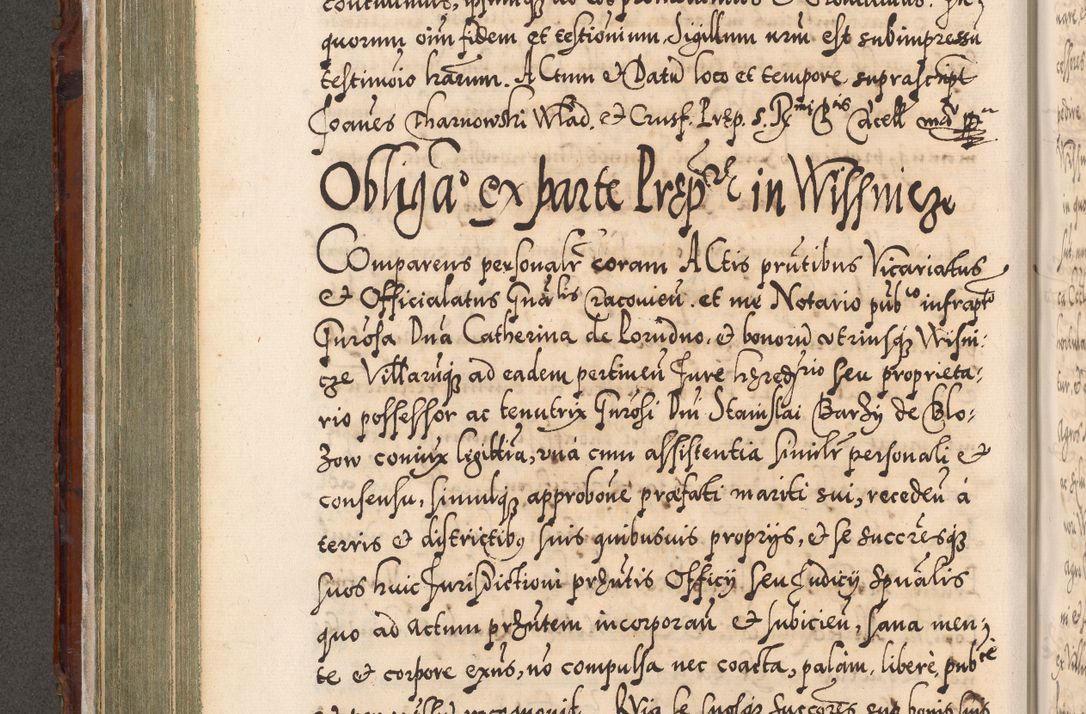 quorum oim fidem et testionium Sigillum nrm est subimpressu
testimoio harum. ACtum & Datū loco et tempore suprascript
Joanes Tharnowski Wład. & Crusf. Prep.
Obligao ex parte Prep in Wissnicze
Comparens personalr coram ACtis prntibus Vicariatus
& Officialatus Gnalis Cracovien. et me Notario pubco infrapto
Gurosa Dna Catherina de Porudno, & bonorū utriusq Wisni-
cze Villaruq ad eadem pertineū Jure heredrio seu proprieta-
rio possessor ac tenutrix Gurosi Dni Stanislai Barzy de Blo-
zow coniux legittia, una cum assistentia similr personali &
consensu, simulq approbone præfati mariti sui, recedeū á
terris & districtibq suis quibusuis proprijs, & se succresq
suos huic Jurisdictioni przntis Officij seu Judicij Spualis
quo ad actum prżntem incorporaū & subicieū, sana men-
te & corpore exns, no compulsa nec coacta, palám, liberè, pubce